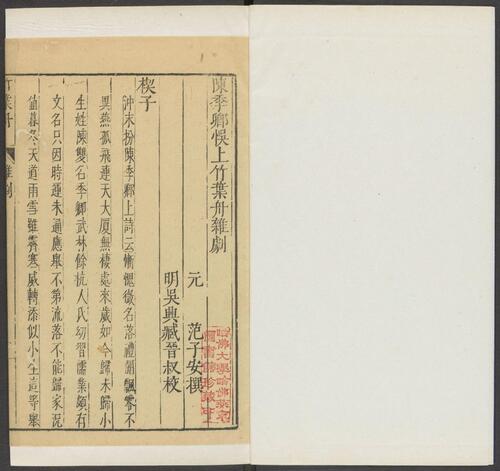 陳季卿悞上竹葉舟雜劇
元 范子安撰
明吳興臧晉叔校
哈佛大學哈佛燕京
圖書館珍藏印
楔子
冲末扮陳季卿上詩云慚愧微名落禮闈飄零不
異燕孤飛連天大厦無棲處來歲如今歸未歸小
生姓陳雙名季卿武林餘杭人氏幼習儒業頗有
文名只因時運未通應舉不第流落不能歸家況
值暮冬天道雨雪雖霽寒威轉添似小生這等舉
竹葉舟 雜劇